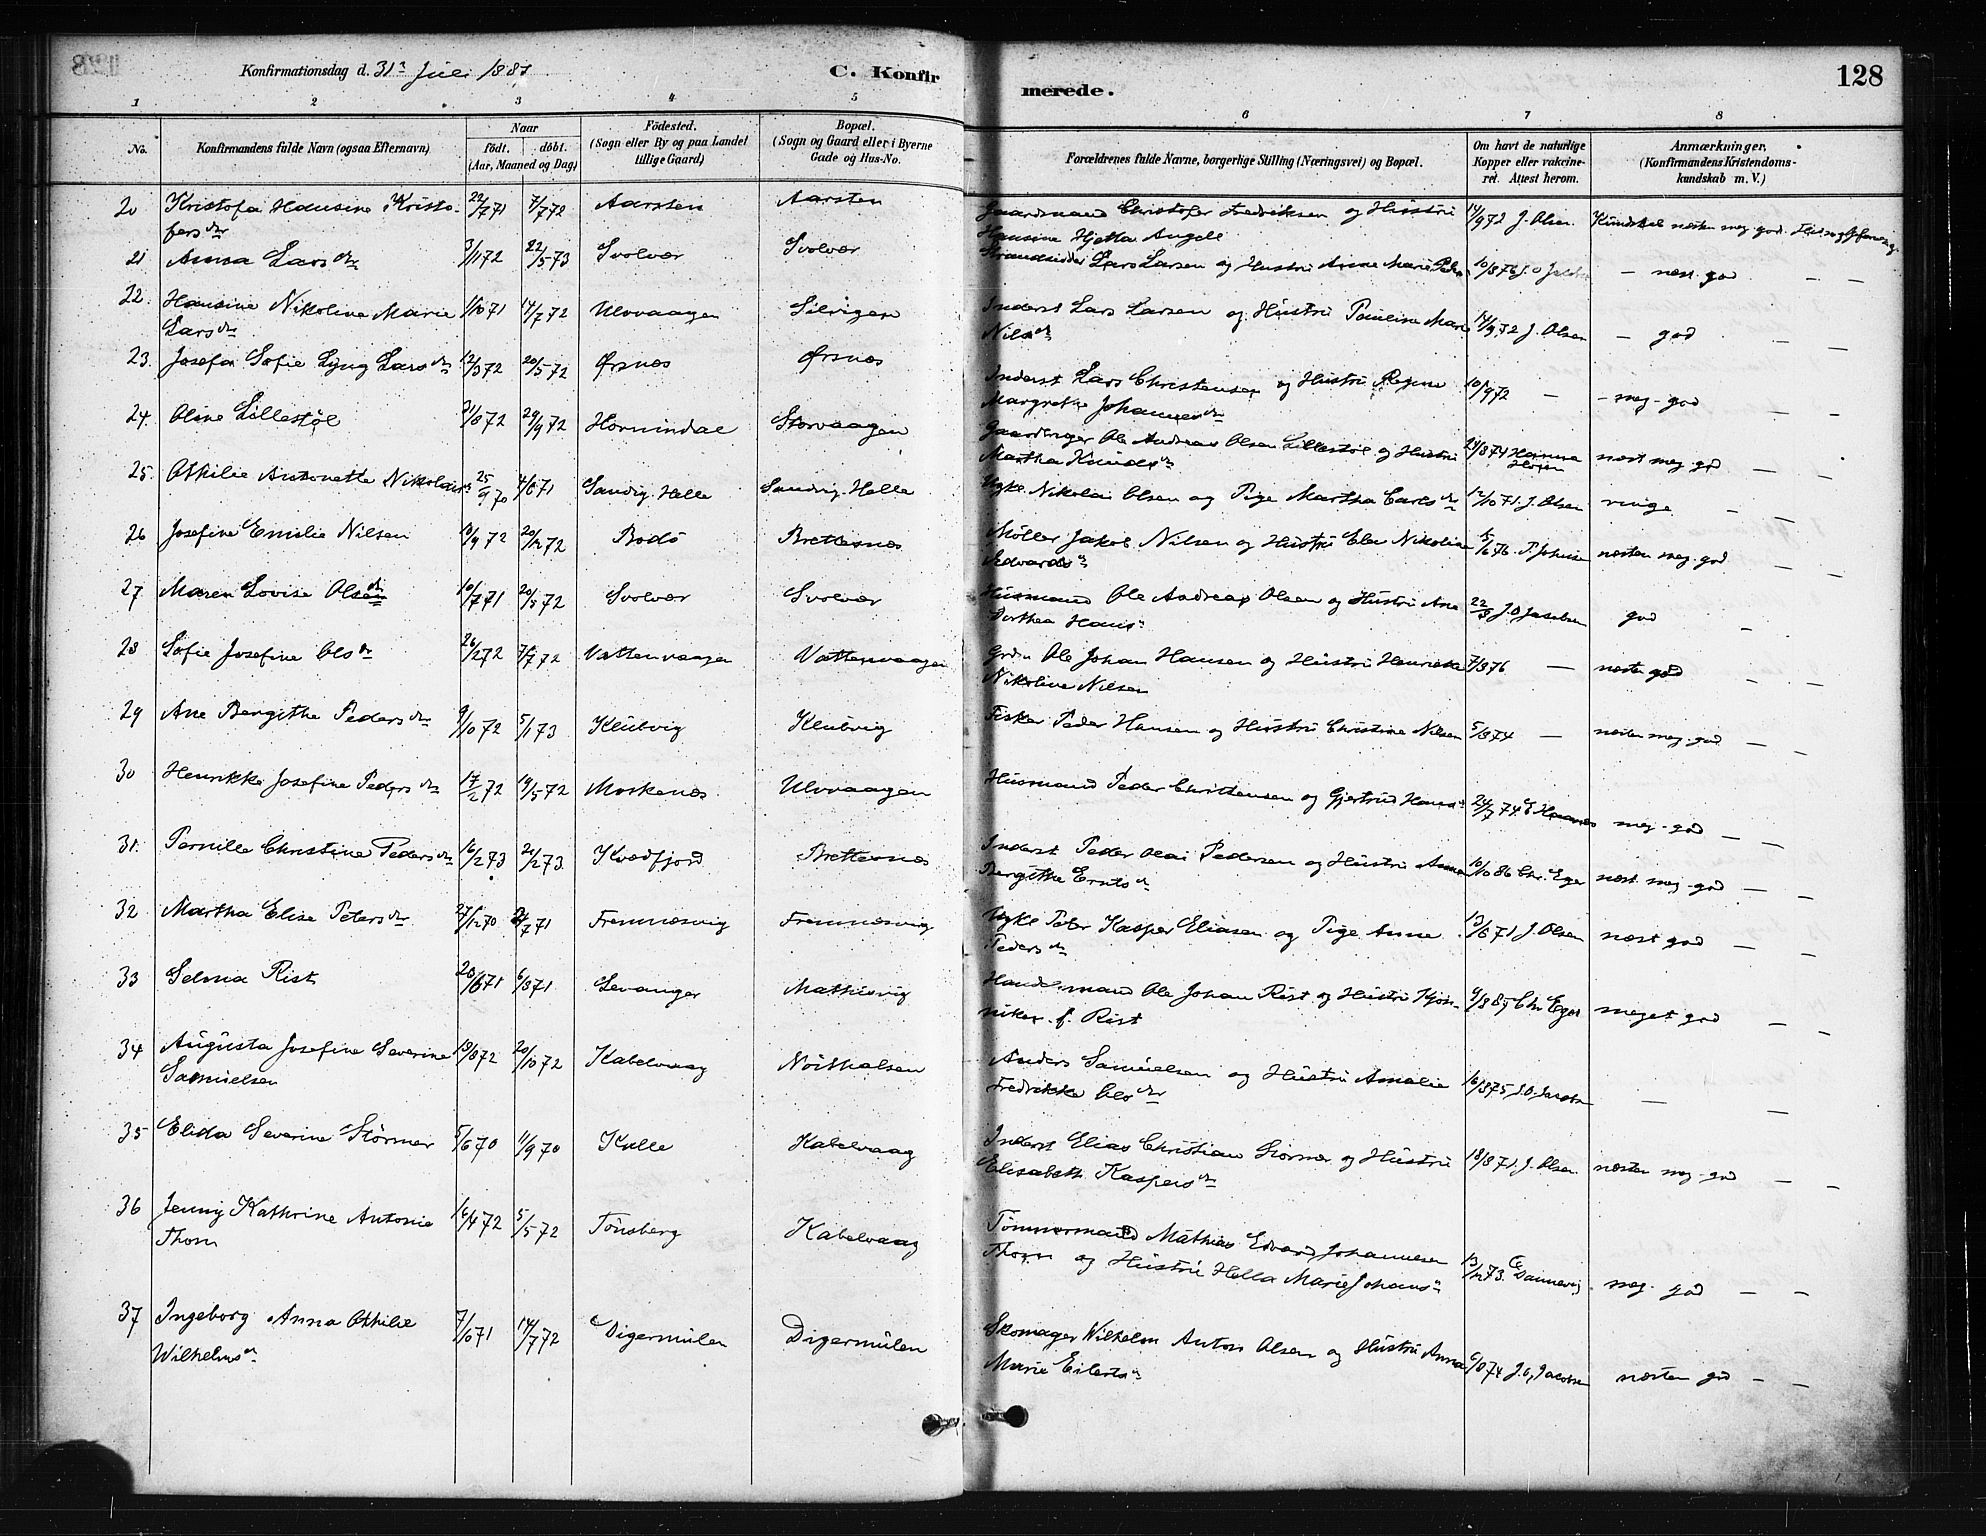 Konfirmationsdag d. 31te Juli 1887
C. Konfirmerede.
128
1 2 3 4 5 6 7 8
No.
Konfirmandens fulde Navn (ogsaa Efternavn)
Naar
födt. döbt.
(Aar, Maaned og Dag)
Födested.
(Sogn eller By og paa Landet tillige Gaard)
Bopæl.
(Sogn og Gaard eller i Byerne Gade og Hus-No.
Forældrenes fulde Navne, borgerlige Stilling (Næringsvei) og Bopæl.
Om havt de naturlige Kopper eller vakcineret. Attest herom.
Anmærkninger, (Konfirmandens Kristendomskundskab m. V.)
20 Kristofa Hansine Kristofersdr 22/7 71 7/7 72 Aarsten Aarsten Gaardmand Christofer Fredriksen og Hustru Hansine Hjetta Angell 14/9 72 J. Olsen Kundskab næsten meg. god.
21 Anna Larsdr 3/11 72 22/5 73 Svolvær Svolvær Strandsidder Lars Larsen og Hustru Anne Marie 10/8 76 – næst. god – –
22. Hansine Nikoline Marie Larsdr 1/10 71 14/7 72 Ulvvaagen Lars Larsen Inderst Lars Larsen og Hustru Pauline Marie Nilsdr 14/9 72 J. Olsen – god – –
23. Josefa Sofie Lyng Larsdr 12/3 72 20/5 72 Ørsnæs Ørsnæs Inderst Lars Christensen og Hustru Regine Margrete Johannesdr 10/9 72 – – meg. god – –
24. Oline Lillestöl 31/8 72 29/9 72 Hornindal Storvaagen Gaardbruger Ole Andreas Olsen Lillestöl og Hustru Martha Knudsdr 24/8 74 næst meg. god – –
25. Othilie Antonette Nikolais 25/9 70 4/6 71 Sandvig. Helle Sandvig. Helle Ugkl. Nikolai Olsen og Pige Martha Carlsdr 12/10 71 J. Olsen ringe – –
26 Josefine Emilie Nilsen 10/9 72 20/12 72 Bodö Brettesnæs Möller Jakob Nilsen og Hustru Elen Nikoline Edvardsdr 5/6 76 næsten meg. god – –
27 Maren Lovise Olsendr 10/7 71 20/5 72 Svolvær Svolvær Husmand Ole Andreas Olsen og Hustru Ane Dorthea Hans 22/8 J.O. Jacobsen god –
28 Sofie Josefine Olsdr 26/2 72 7/7 72 Vattenvaagen Vattenvaagen Ole Johan Hansen og Hustru Henrikke Nikoline Nilsen 7/8 76 – næsten god – –
29 Ane Bergithe Pedersdr 9/10 72 5/1 73 Klubvig Klubvig Fisker Peder Hansen og Hustru Christine Nilsen 5/8 74 – næsten meg. god – –
30 Henrikke Josefine Pedersdr 17/2 72 19/5 72 Moskenes Ulvvaagen Husmand Peder Christensen og Gjertrud Hans 24/7 74. meg. god – –
31. Pernille Christine Pedersdr 16/2 73 21/2 73 Kvædfjord Brettesnæs Inderst Peder Olai Pedersen og Hustru Anne Bergithe Erntsdr 10/10 86 Chr. Eger næst meg. god – –
32 Martha Elise Petersdr 27/12 70 2/7 71 Fremnæsvig Fremnæsvig Ugkl Peter Kasper Eliasen og Pige Anne Pedersdr 13/8 71 J. Olsen næst god – –
33 Selma Rist 20/6 71 6/8 71 Levanger Mathisvig Handelsmand Ole Johan Rist og Hustru f. Rist 9/8 87 Chr Eger meget god – –
34 Augusta Josefine Severine Samuelsen 13/8 72 20/10 72 Kabelvaag Anders Samuelsen og Hustru Amalie Fredrikke Olsdr 16/8 75 J.O. Jacobsen – –
35 Elida Severine Störmer 5/6 70 11/9 70 Kalle Kabelvaag Inderst Elias Christian Störmer og Hustru Elisabeth Kaspersdr 18/8 71 J. Olsen næsten meg. god – –
36 Jenny Kathrine Antonie Thorn 16/4 72 5/5 72 Tönsberg Kabelvaag Tömmermand Mathias Edvard Johannesen Thorn og Hustru Hella Marie Johans 13/12 73. meg. god – –
37 Ingeborg Anna Othilie Wilhelmsdr 7/10 71 14/7 72 Digermulen Digermulen Skomager Wilhelm Anton Olsen og Hustru Anna Marie Eilerts 6/8 74 J.O. Jacobsen næsten god – –